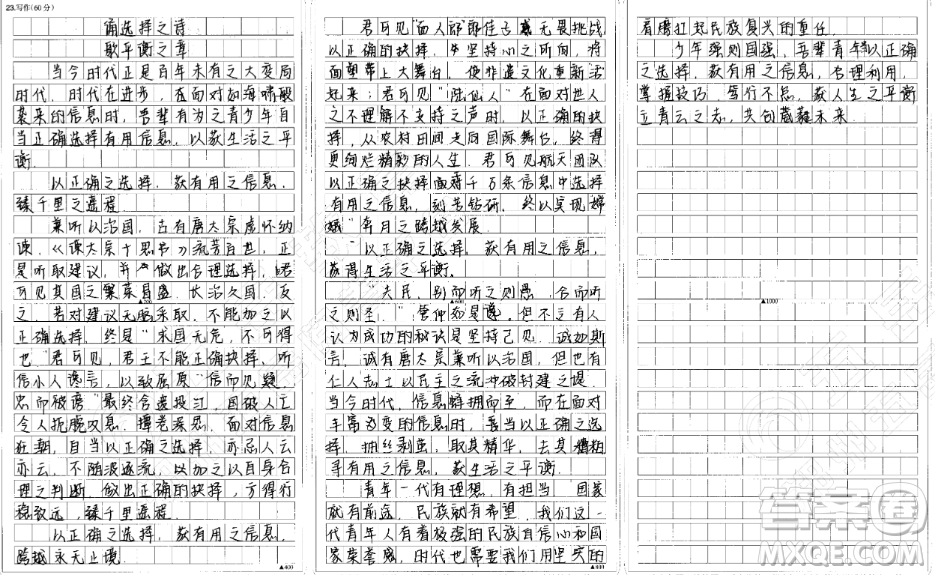 23.写作(60分)
诵选择之诗
歌平衡之章
当今时代正是百年未有之大变局
时代，时代在进步，在面对如海啸般
袭来的信息时，吾辈有为之青少年自
当正确选择有用信息，以获生活之平
衡
以正确之选择，获有用之信息，
臻千里之遥程
兼听以治国，古有唐太宗虚怀纳
谏，《谏太宗十思书》流芳百世，正
是听取建议，并做出合理选择，君
可见其国之繁荣昌盛，长治久国，反
之，若对建议无脑采取，不能加之以
正确选择，终是“求国无危，不可得
也”君可见，君王不能正确抉择，听
信小人谗言，以致屈原“信而见疑，
忠而被谤”最终含迷投江，国破人亡
令人扼腕叹息，掩卷深思，面对信息
在朝，自当以正确之选择，亦忌人云
亦云，不随波逐流，以加之以自身合
理之判断，做出正确的抉择，方得行
稳致远，臻千里遥程
以正确之选择，获有用之信息，
跨越永无止境
▲400
君可见“面人郎”郎佳子彧无畏挑战
以正确的抉择，坚持心之所向，将
面塑带上大舞台，使非遗文化重新活
起来；君可见“陆仙人”在面对世人
之不理解不支持之声时，以正确的抉
择，从农村田间走向国际舞台，终得
更绚烂精彩的人生，君可见航天团队
以正确之抉择面对千万条信息中选择
有用之信息，刻苦钻研，终以实现“嫦
娥”奔月之跨越发展
以正确之选择，获有用之信息，
获得生活之平衡.
“夫民，别而听之则愚，合而听
之则圣，”管仲如是道，但不乏有人
认为成功的秘诀是坚持己见，诚如斯
言，诚有唐太宗兼听以治国，但也有
仁人志士以民主之流冲破封建之堤，
当今时代，信息蜂拥而至，而在面对
丰富多变的信息时，吾当以正确之选
择，抽丝剥茧，取其精华，去其糟粕
寻有用之信息，获生活之平衡
青年一代有理想，有担当，国家
就有前途，民族就有希望，我们这一
代青年人有着极强的民族自信心和国
家荣誉感，时代也需要我们用坚实的
▲800
肩膀扛起民族复兴的重任
少年强则国强，吾辈青年以正确
之选择，获有用之信息，合理利用，
掌握技巧，笃行不怠，获人生之平衡
立青云之志，共创葳蕤未来
▲1000
答案圈
MXQE.COM